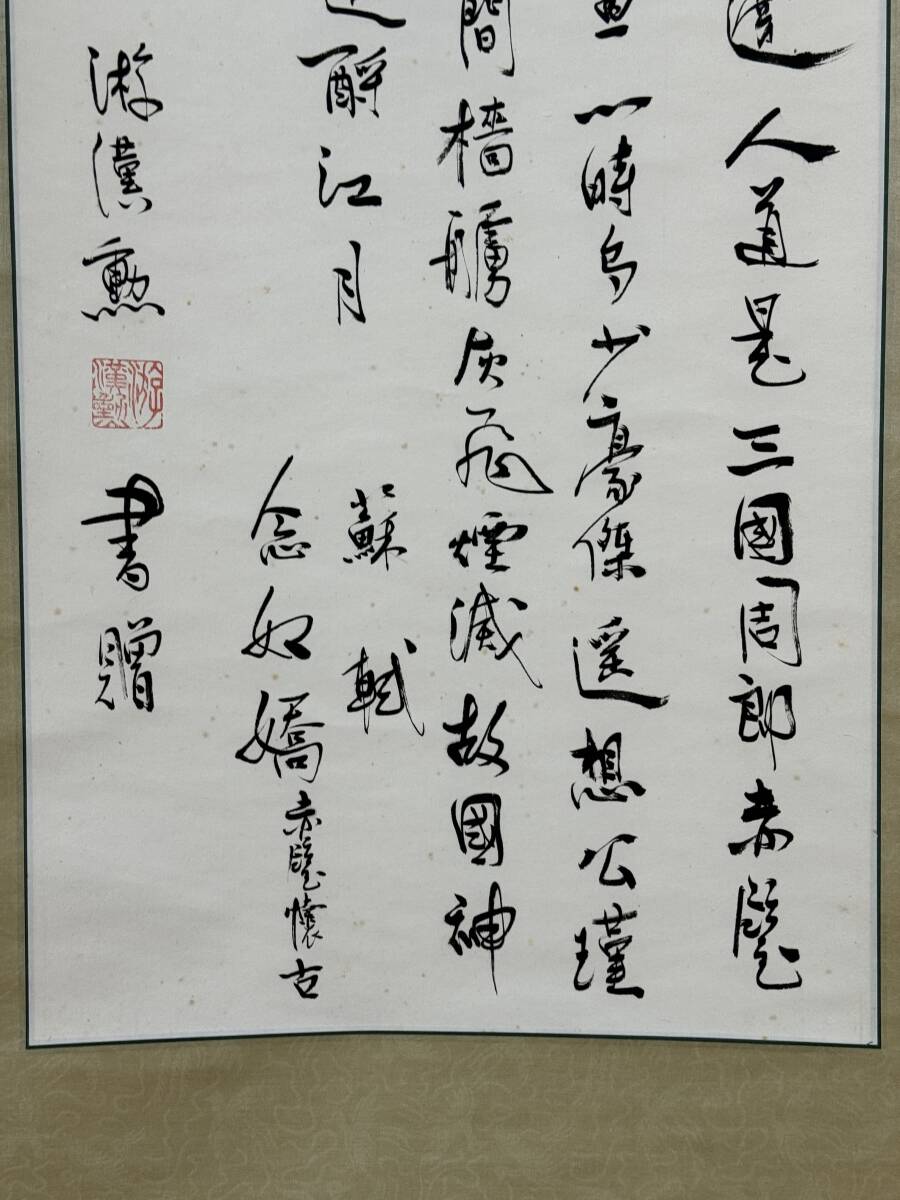 邊人道是三國周郎赤壁
一時多少豪傑遙想公瑾
間檣艣灰飛煙滅故國神
酹江月
蘇軾
念奴嬌赤壁懷古
游漢勳
游漢勳
書贈